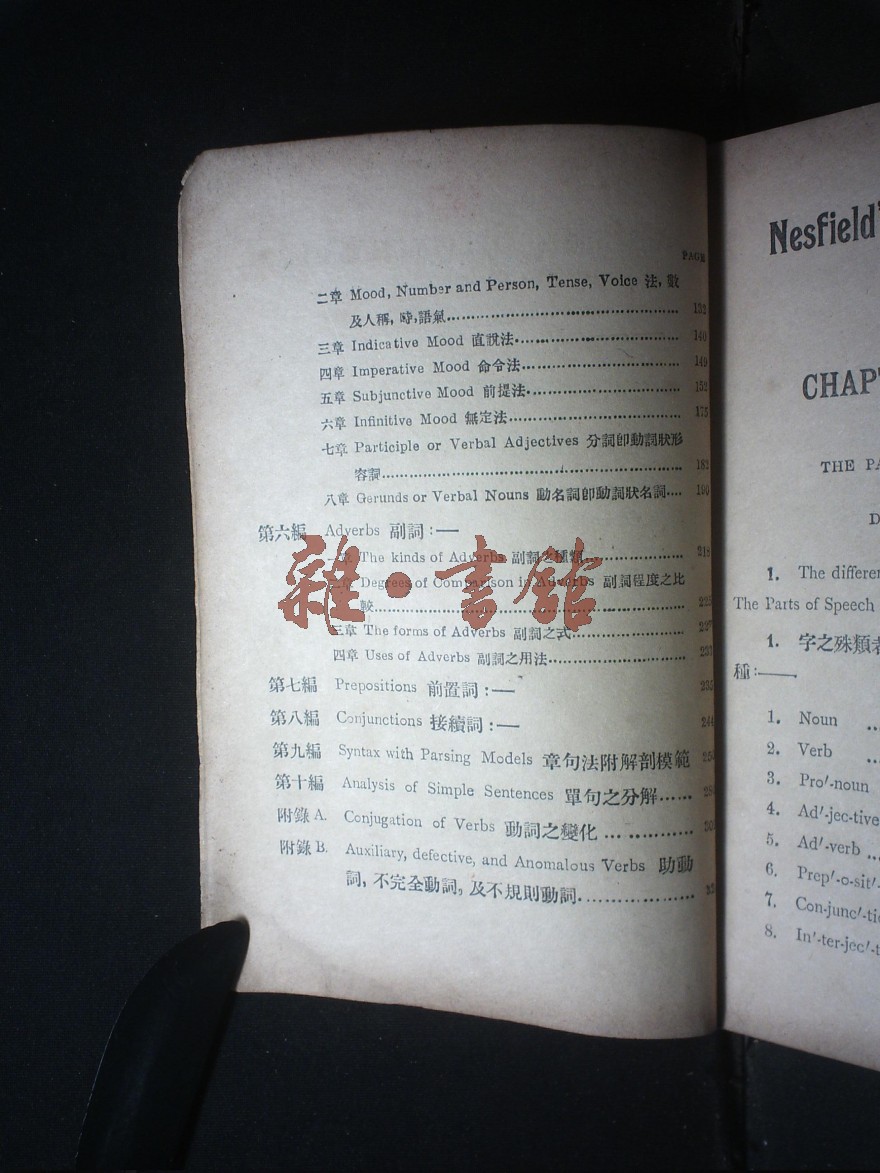 PAGE
二章 Mood, Number and Person, Tense, Voice 法, 數
及人稱, 時, 語氣 132
三章 Indicative Mood 直說法 140
四章 Imperative Mood 命令法 149
五章 Subjunctive Mood 前提法 152
六章 Infinitive Mood 無定法 175
七章 Participle or Verbal Adjectives 分詞卽動詞狀形
容詞 182
八章 Gerunds or Verbal Nouns 動名詞卽動詞狀名詞 190
第六編 Adverbs 副詞:—
一章 The kinds of Adverbs 副詞之種類 218
二章 Degrees of Comparison in Adverbs 副詞程度之比
較
三章 The forms of Adverbs 副詞之式 227
四章 Uses of Adverbs 副詞之用法 231
雜·書館
第七編 Prepositions 前置詞:— 235
第八編 Conjunctions 接續詞:— 244
第九編 Syntax with Parsing Models 章句法附解剖模範
第十編 Analysis of Simple Sentences 單句之分解
附錄 A. Conjugation of Verbs 動詞之變化
附錄 B. Auxiliary, defective, and Anomalous Verbs 助動
詞, 不完全動詞, 及不規則動詞
Nesfield'
CHAP
THE PA
D
1. The differen
The Parts of Speech
1. 字之殊類者
種:—
1. Noun
2. Verb
3. Pro'-noun
4. Ad'-jec-tive
5. Ad'-verb
6. Prep'-o-sit'-
7. Con-junc'-ti
8. In'-ter-jec'-t